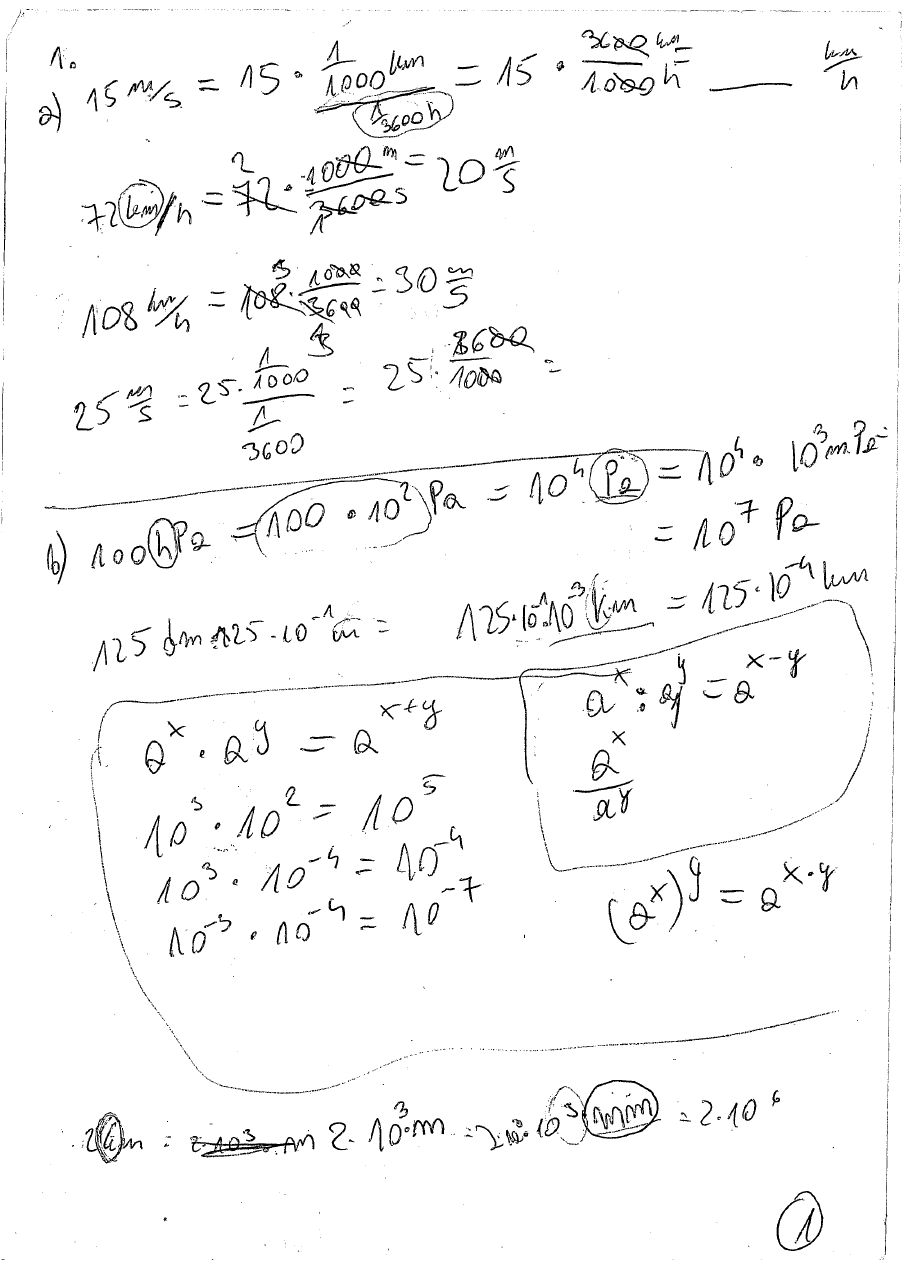 1.
a) 15 m/s = 15 · 1/1000 km / 1/3600 h = 15 · 3600 km / 1000 h = ____ km/h
72 km/h = 72 · 1000 m / 3600 s = 20 m/s
108 km/h = 108 · 1000 / 3600 = 30 m/s
25 m/s = 25 · 1/1000 / 1/3600 = 25 · 3600 / 1000 =
b) 100 hPa = 100 · 10² Pa = 10⁴ Pa = 10⁴ · 10³ m Pa =
= 10⁷ Pa
125 dm = 125 · 10⁻¹ m = 125 · 10⁻¹ · 10⁻³ km = 125 · 10⁻⁴ km
aˣ : aʸ = aˣ⁻ʸ
aˣ / aʸ
aˣ · aʸ = aˣ⁺ʸ
10³ · 10² = 10⁵
10³ · 10⁻⁴ = 10⁻⁴
10⁻³ · 10⁻⁴ = 10⁻⁷
(aˣ)ʸ = aˣ·ʸ
2 km = 2 · 10³ m 2 · 10³ m = 2 · 10³ · 10³ mm = 2 · 10⁶
1